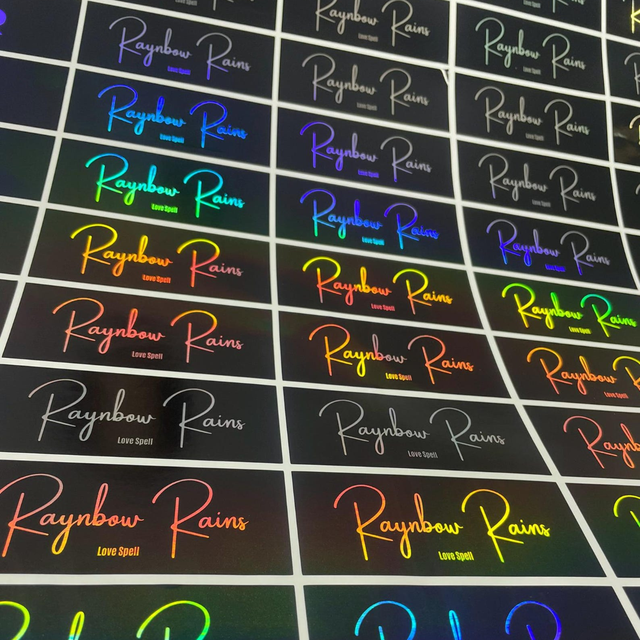 Raynbow Rains
Love Spell
Raynbow Rains
Love Spell
Raynbow Rains
Love Spell
Raynbow Rains
Love Spell
Raynbow Rains
Love Spell
Raynbow Rains
Love Spell
Raynbow Rains
Love Spell
Raynbow Rains
Love Spell
Raynbow Rains
Love Spell
Raynbow Rains
Love Spell
Raynbow Rains
Love Spell
Raynbow Rains
Love Spell
Raynbow Rains
Love Spell
Raynbow Rains
Love Spell
Raynbow Rains
Love Spell
Raynbow Rains
Love Spell
Raynbow Rains
Love Spell
Raynbow Rains
Love Spell
Raynbow Rains
Love Spell
Raynbow Rains
Love Spell
Raynbow
Love Spell